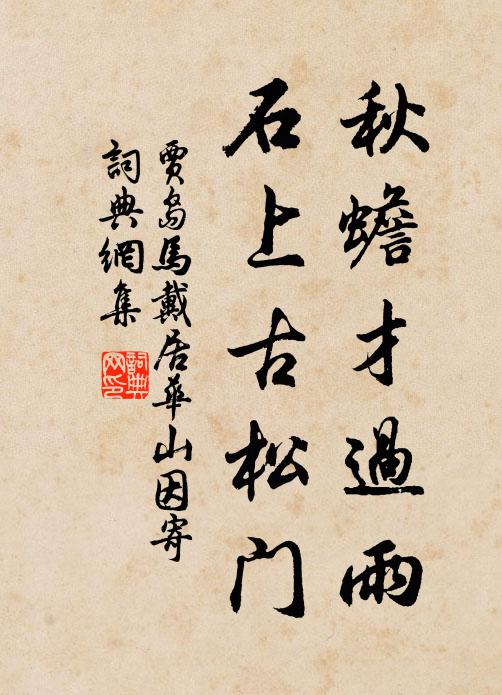 秋蟾才過雨
石上古松门
賈島馬戴居華山因寄
詞典網集
詞典网印